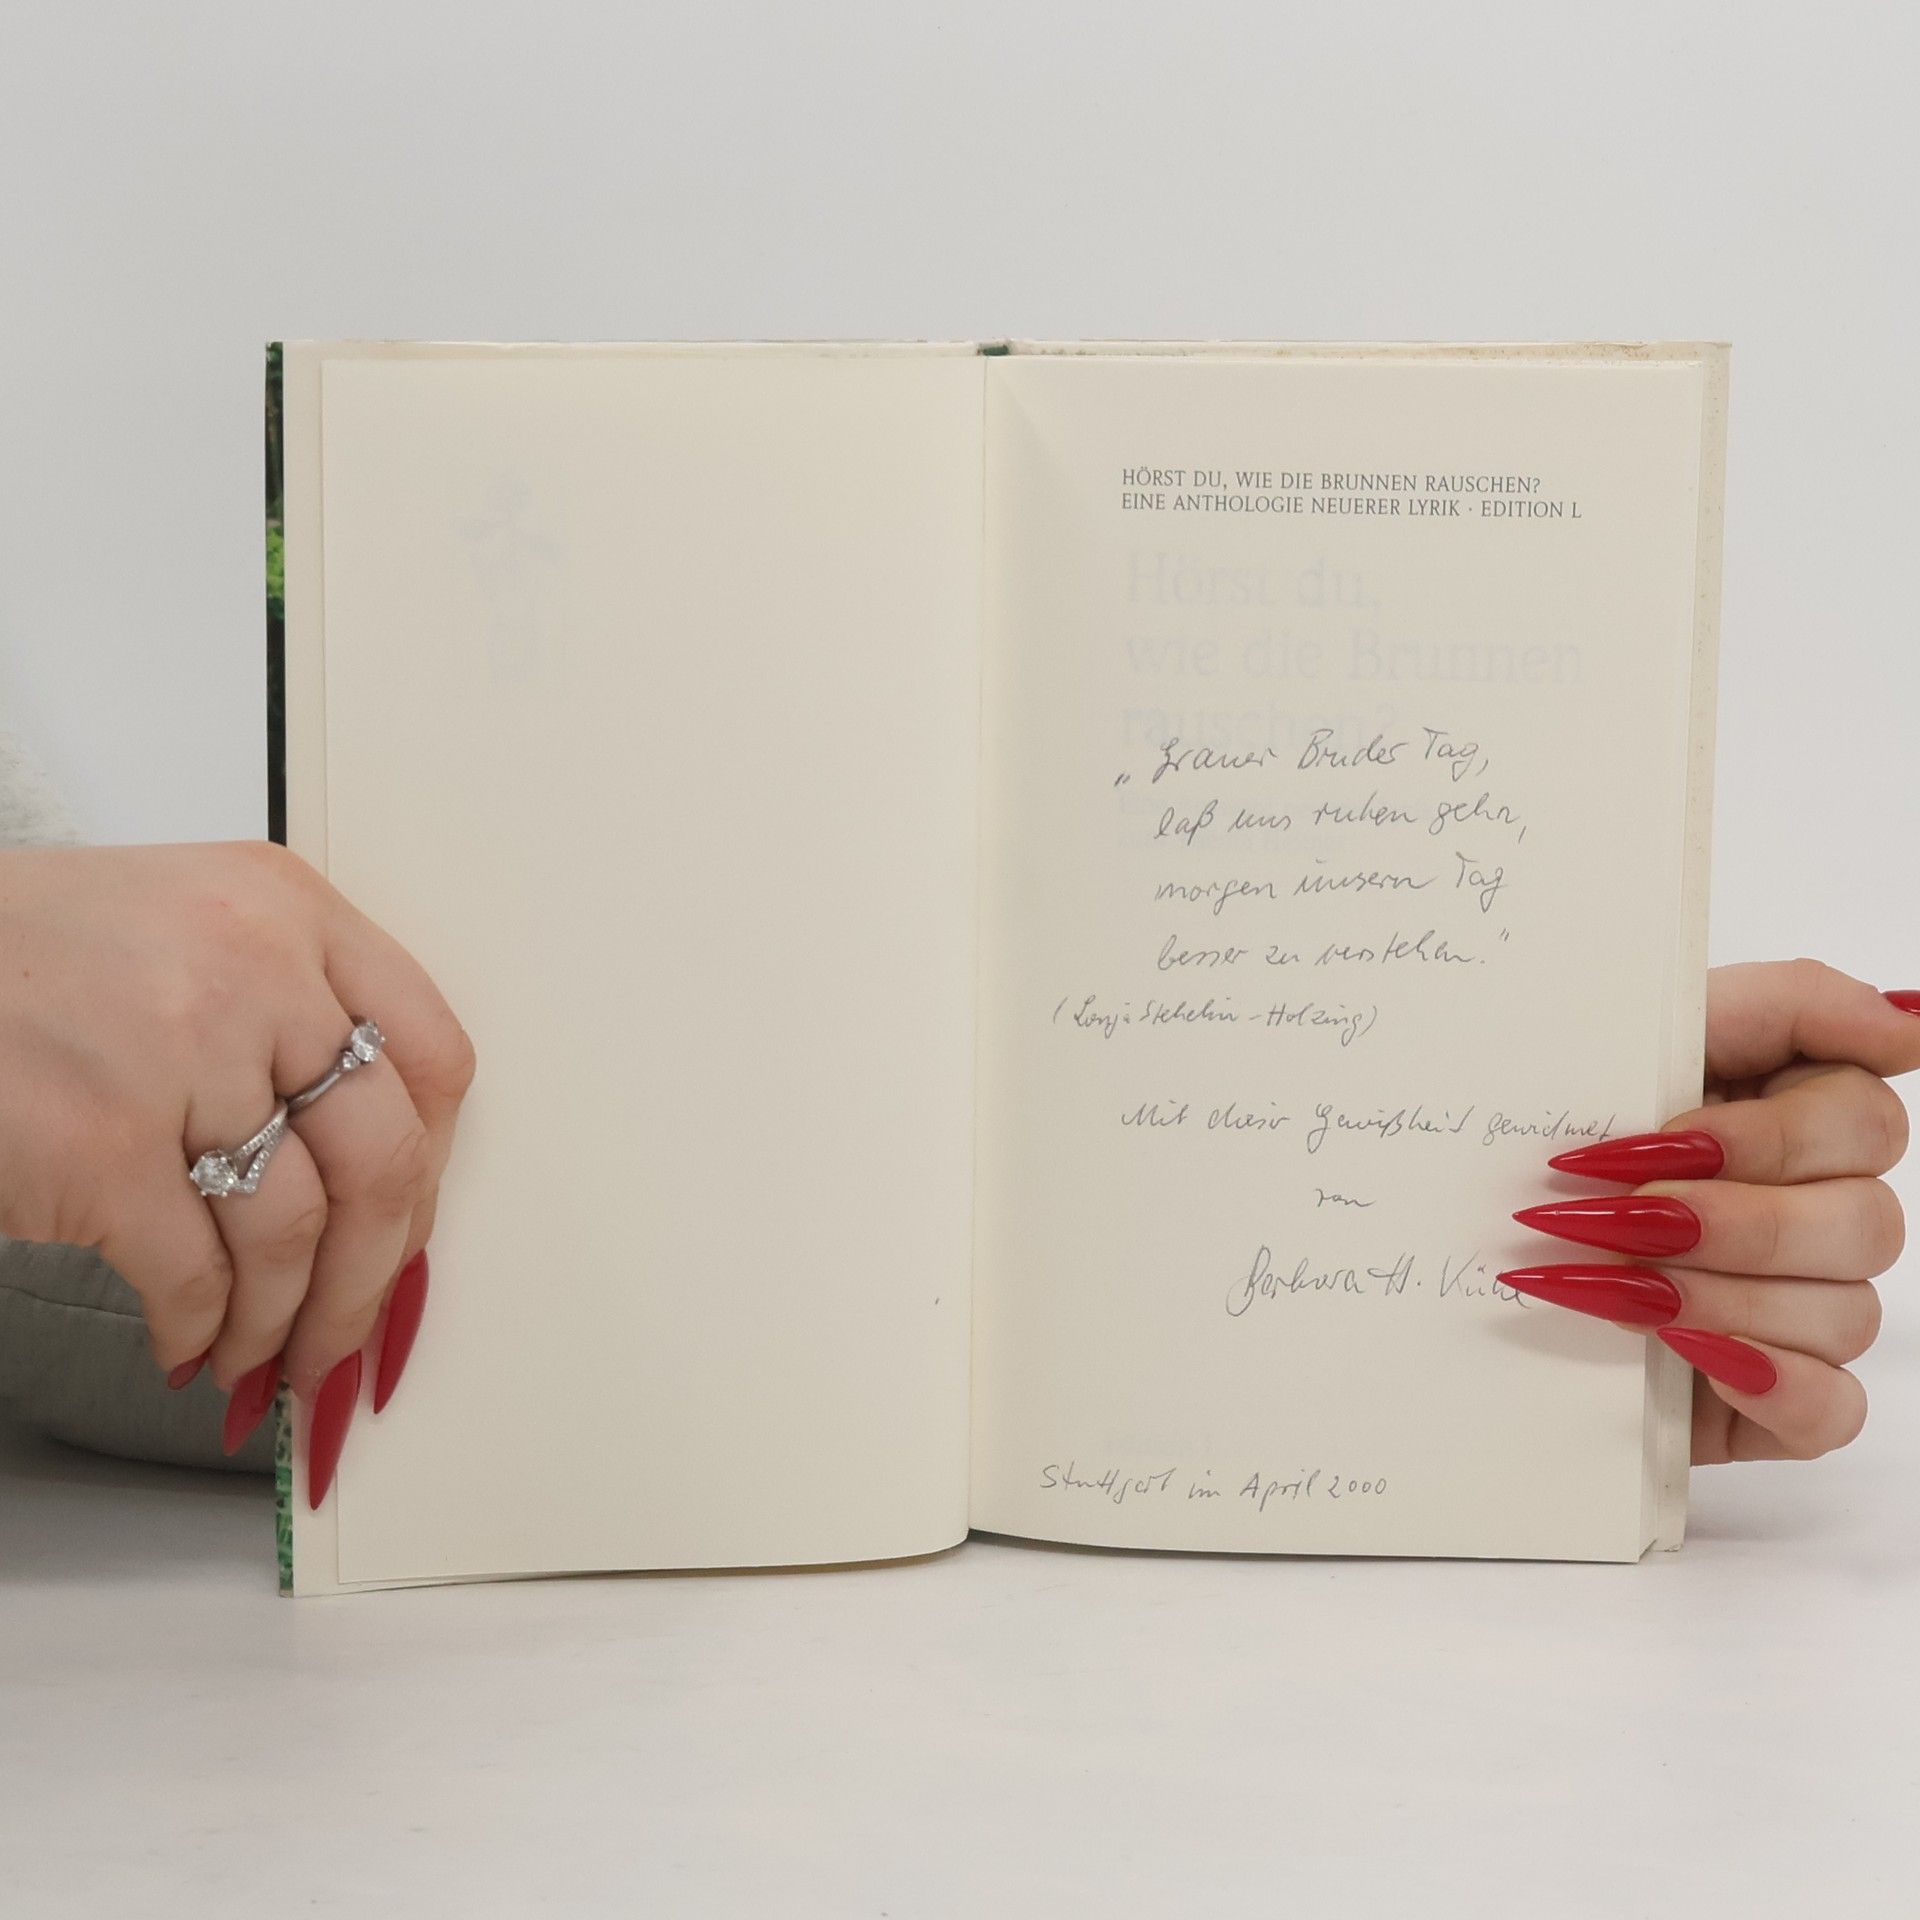 HÖRST DU, WIE DIE BRUNNEN RAUSCHEN?
EINE ANTHOLOGIE NEUERER LYRIK · EDITION L
Hörst du,
wie die Brunnen
rauschen?
„Grauer Bruder Tag,
laß uns ruhen gehn,
morgen unsern Tag
besser zu verstehen."
(Sonja Stehelin-Holzing)
Mit dieser Gewißheit gewidmet
von
Barbara H.
Stuttgart im April 2000